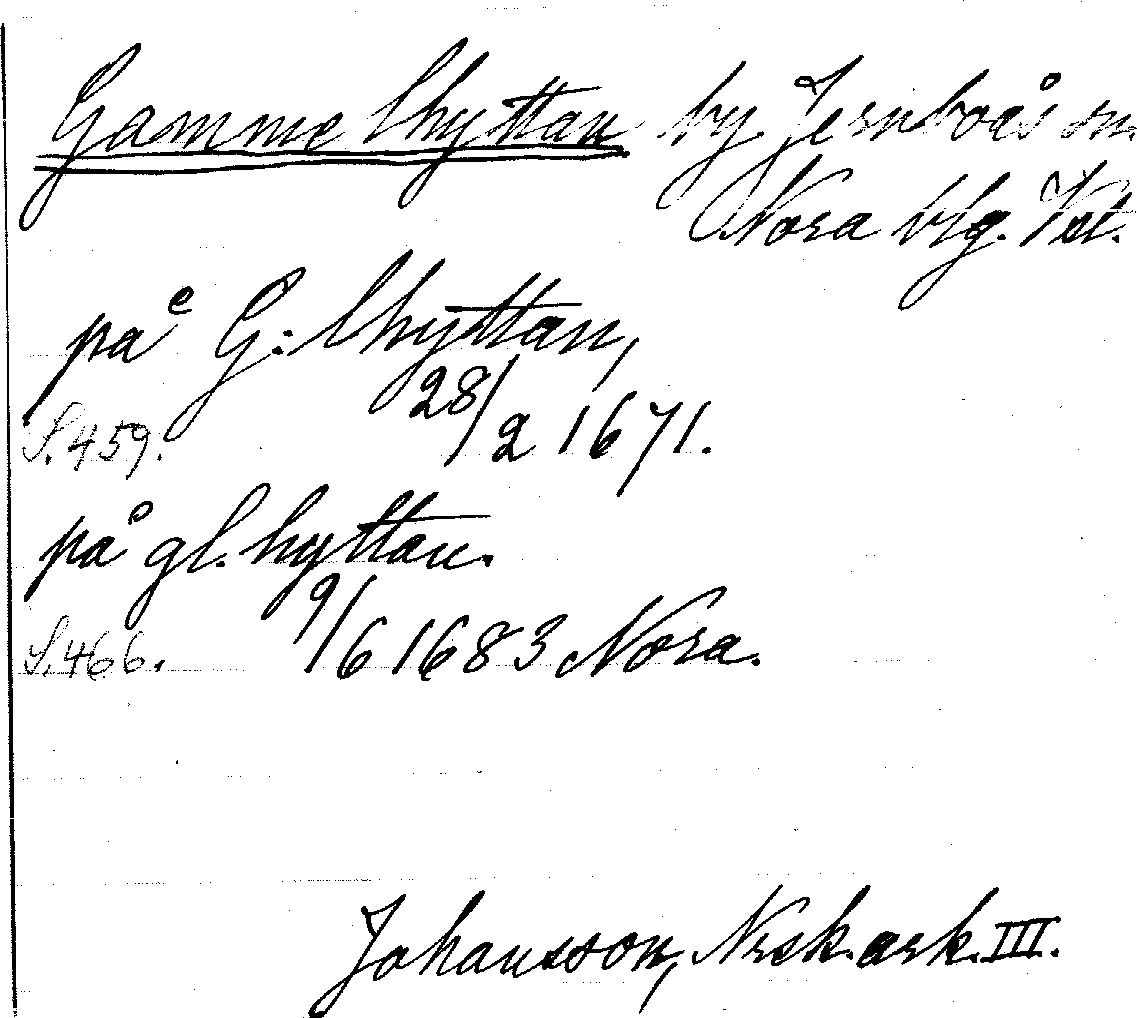 Gammelhyttan by Jernboås sn.
Nora bfg. Vstl.
på G:lhyttan,
28/2 1671.
S. 459.
på gl. hyttan.
9/6 1683 Nora.
S. 466.
Johansson, Nrsk. ark. III.